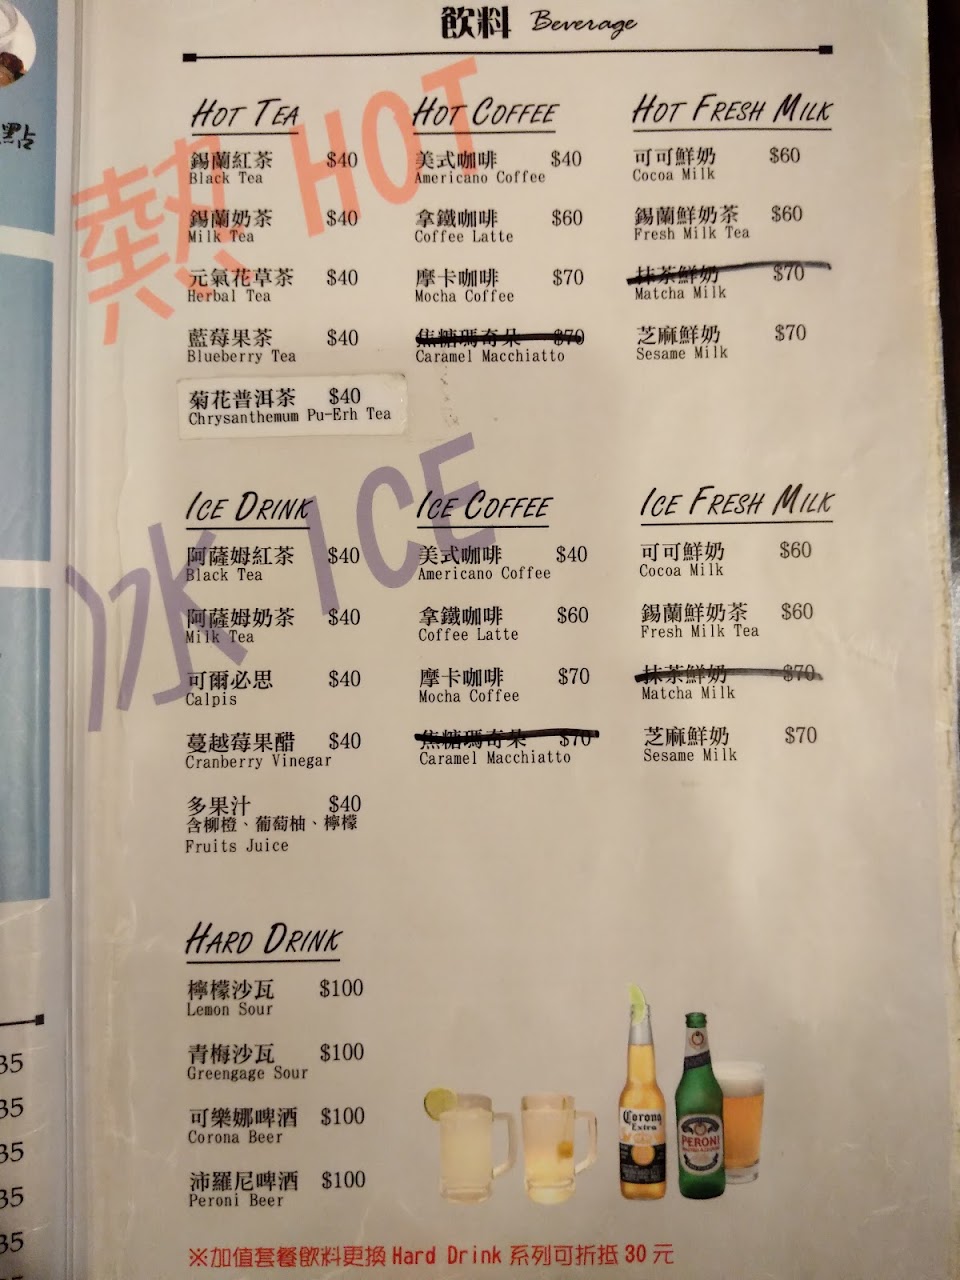 飲料 Beverage
熱 HOT
HOT TEA
錫蘭紅茶 $40
Black Tea
錫蘭奶茶 $40
Milk Tea
元氣花草茶 $40
Herbal Tea
藍莓果茶 $40
Blueberry Tea
菊花普洱茶 $40
Chrysanthemum Pu-Erh Tea
HOT COFFEE
美式咖啡 $40
Americano Coffee
拿鐵咖啡 $60
Coffee Latte
摩卡咖啡 $70
Mocha Coffee
焦糖瑪奇朵 $70
Caramel Macchiatto
HOT FRESH MILK
可可鮮奶 $60
Cocoa Milk
錫蘭鮮奶茶 $60
Fresh Milk Tea
抹茶鮮奶 $70
Matcha Milk
芝麻鮮奶 $70
Sesame Milk
冰 ICE
ICE DRINK
阿薩姆紅茶 $40
Black Tea
阿薩姆奶茶 $40
Milk Tea
可爾必思 $40
Calpis
蔓越莓果醋 $40
Cranberry Vinegar
多果汁 $40
含柳橙、葡萄柚、檸檬
Fruits Juice
ICE COFFEE
美式咖啡 $40
Americano Coffee
拿鐵咖啡 $60
Coffee Latte
摩卡咖啡 $70
Mocha Coffee
焦糖瑪奇朵 $70
Caramel Macchiatto
ICE FRESH MILK
可可鮮奶 $60
Cocoa Milk
錫蘭鮮奶茶 $60
Fresh Milk Tea
抹茶鮮奶 $70
Matcha Milk
芝麻鮮奶 $70
Sesame Milk
HARD DRINK
檸檬沙瓦 $100
Lemon Sour
青梅沙瓦 $100
Greengage Sour
可樂娜啤酒 $100
Corona Beer
沛羅尼啤酒 $100
Peroni Beer
Corona
Extra
PERONI
※加值套餐飲料更換 Hard Drink 系列可折抵 30 元
35
35
35
35
35